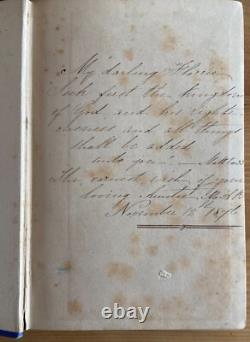 My darling Florrie
Seek first the kingdom
of God and his right-
eousness and all things
shall be added
unto you. Matt
The earnest wish of your
loving Auntie
November 18
ebay